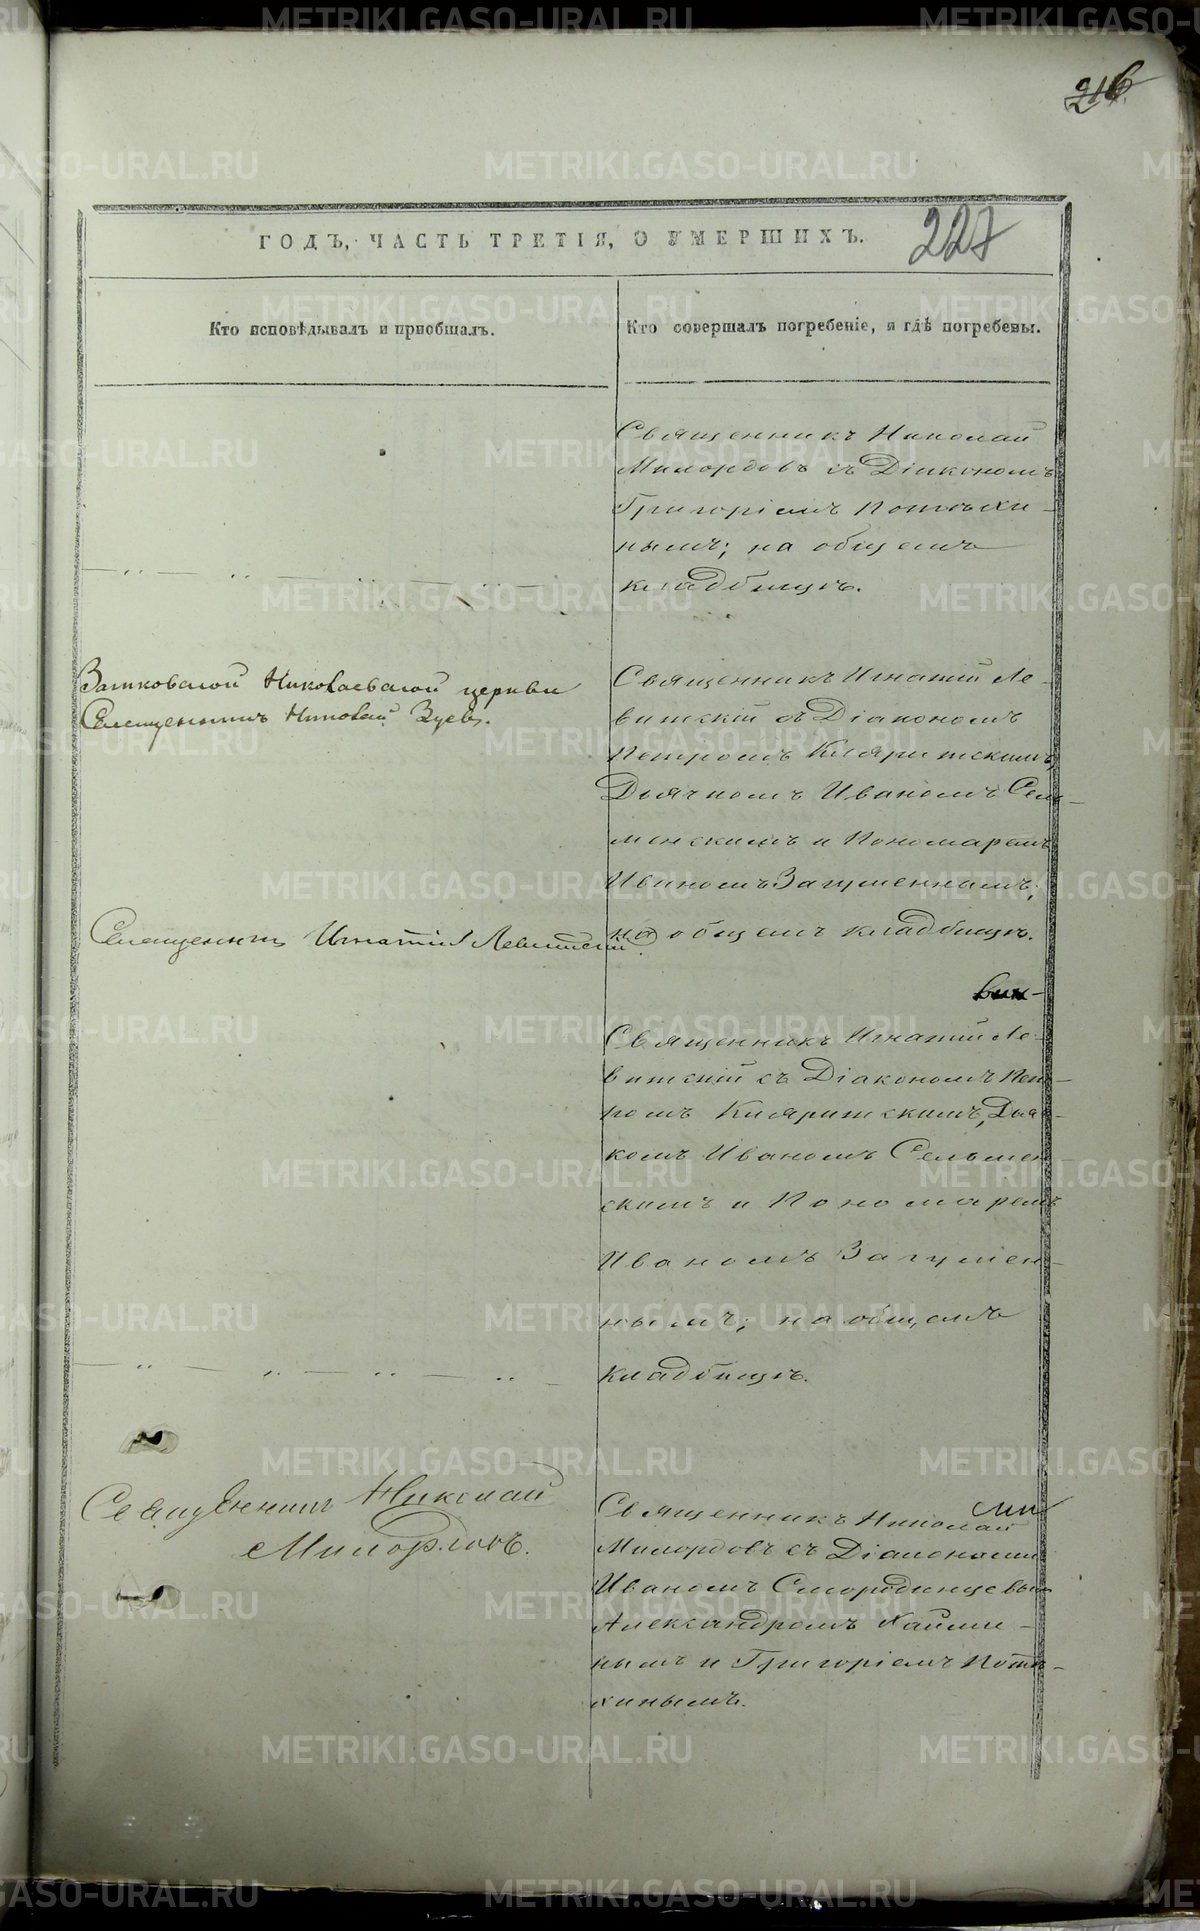 216.
227
ГОДЪ, ЧАСТЬ ТРЕТІЯ, О УМЕРШИХЪ.
Кто исповѣдывалъ и приобщалъ.
Кто совершалъ погребеніе, и гдѣ погребены.
Священникъ Николай
Милордовъ съ Діакономъ
Григоріемъ Потѣхи-
нымъ; на общемъ
кладбищѣ.
Николаевской церкви
Священникъ Николай Зуевъ.
Священникъ Игнатій Ле-
витскій съ Діакономъ
Петромъ Кляритскимъ,
Дьячкомъ Иваномъ Сель-
менскимъ и Пономаремъ
Иваномъ Загуменнымъ;
на общемъ кладбищѣ.
Священникъ Игнатій Левитскій
Священникъ Игнатій Ле-
витскій съ Діакономъ Пет-
ромъ Кляритскимъ, Дьяч-
комъ Иваномъ Сельмен-
скимъ и Пономаремъ
Иваномъ Загумен-
нымъ; на общемъ
кладбищѣ.
Священникъ Николай
Милордовъ.
Священникъ Николай
Милордовъ съ Діаконами
Иваномъ Смородинцевымъ
Александромъ
нымъ и Григоріемъ Потѣ-
хинымъ.
METRIKI.GASO-URAL.RU